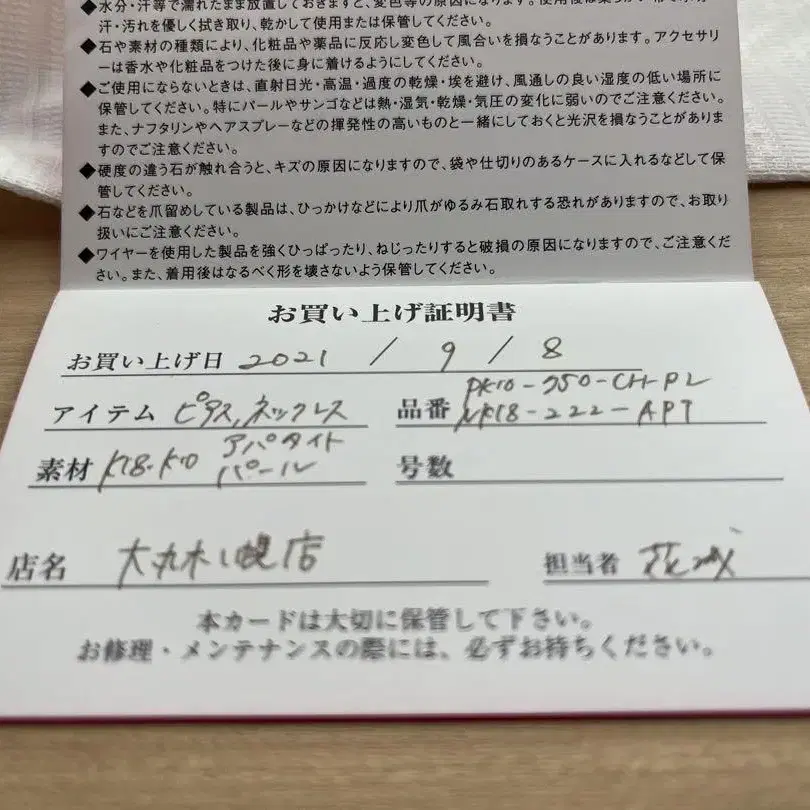 ◆水分・汗等で濡れたまま放置しておきますと、変色等の原因になります。使用後は柔らかい布で水分・
汗・汚れを優しく拭き取り、乾かして使用または保管してください。
◆石や素材の種類により、化粧品や薬品に反応し変色して風合いを損なうことがあります。アクセサリ
ーは香水や化粧品をつけた後に身に着けるようにしてください。
◆ご使用にならないときは、直射日光・高温・過度の乾燥・埃を避け、風通しの良い湿度の低い場所に
保管してください。特にパールやサンゴなどは熱・湿気・乾燥・気圧の変化に弱いのでご注意ください。
また、ナフタリンやヘアスプレーなどの揮発性の高いものと一緒にしておくと光沢を損なうことがありま
すのでご注意ください。
◆硬度の違う石が触れ合うと、キズの原因になりますので、袋や仕切りのあるケースに入れるなどして保
管してください。
◆石などを爪留めしている製品は、ひっかけなどにより爪がゆるみ石取れする恐れがありますので、お取り
扱いにご注意ください。
◆ワイヤーを使用した製品を強くひっぱったり、ねじったりすると破損の原因になりますので、ご注意くだ
さい。また、着用後はなるべく形を壊さないよう保管してください。
お買い上げ証明書
お買い上げ日 2021 / 9 / 8
アイテム ピアス,ネックレス
品番 PK10-750-CH-PL
NK18-222-APT
素材 K18・K10 アパタイト
パール
号数
店名 大丸札幌店
担当者 花城
本カードは大切に保管して下さい。
お修理・メンテナンスの際には、必ずお持ちください。